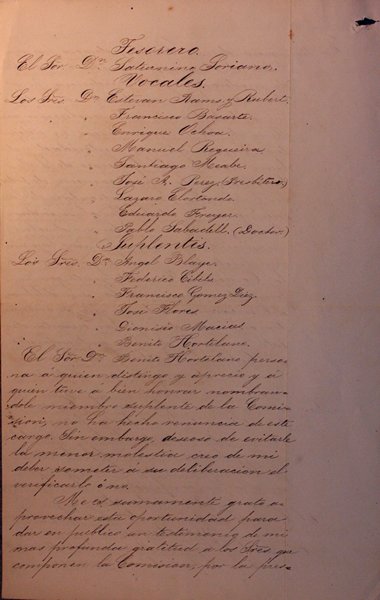 Tesorero.
El Sor Dn Saturnino Soriano.
Vocales.
Los Sres. Dn Estevan Rams y Rubert.
" Francisco Basarte.
" Enrique Ochoa.
" Manuel Regueira
" Santiago Meabe.
" José R. Perez (Presbitero)
" Lazaro Elortondo.
" Eduardo Freyer.
" Pablo Sabadell. (Doctor)
Suplentes.
Los Sres. Dn Angel Blaye.
" Federico Cibils.
" Francisco Gomez Diez.
" José Flores
" Dionisio Macias
" Benito Hortelano.
El Sor Dn Benito Hortelano, perso-
na á quien distingo y aprecio y á
quien tuve á bien honrar nombran-
dole miembro suplente de la Comi-
sion, no ha hecho renuncia de este
cargo. Sin embargo, deseoso de evitarle
la menor molestia creo de mi
deber someter á su deliberacion el
verificarlo ó no.
Me es sumamente grato a-
provechar esta oportunidad para
dar en publico un testimonio de mi
mas profunda gratitud a los Sres que
componen la Comision, por la pres-